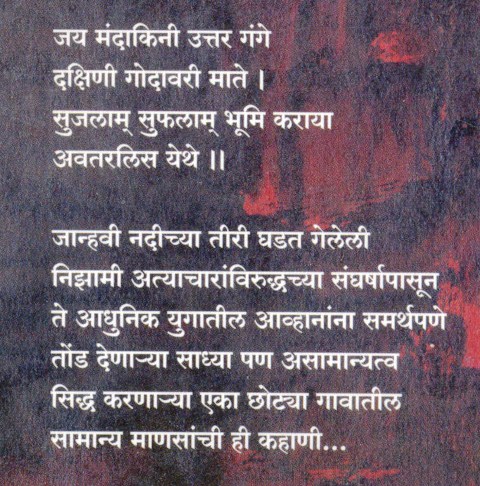 जय मंदाकिनी उत्तर गंगे
दक्षिणी गोदावरी माते ।
सुजलाम् सुफलाम् भूमि कराया
अवतरलिस येथे ।।
जान्हवी नदीच्या तीरी घडत गेलेली
निझामी अत्याचारांविरुद्धच्या संघर्षापासून
ते आधुनिक युगातील आव्हानांना समर्थपणे
तोंड देणाऱ्या साध्या पण असामान्यत्व
सिद्ध करणाऱ्या एका छोट्या गावातील
सामान्य माणसांची ही कहाणी...